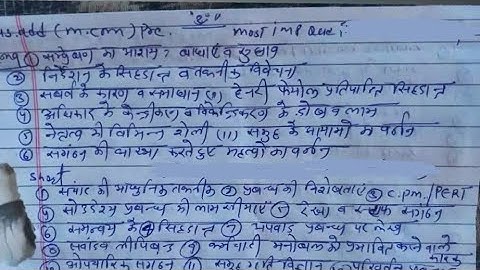 (M.com) Pre. most imp Que.
① सम्प्रेषण का माध्यम? बाधाएं व सुझाव
② निर्देशन के सिद्धान्त व तकनीक विवेचना
③ संघर्ष के कारण व समाधान (9) हेनरी फेयोल प्रतिपादित सिद्धान्त
④ अधिकार के केन्द्रीकरण व विकेन्द्रीकरण के दोष व लाभ
⑤ नेतृत्व की विभिन्न शैली (11) समूह के आयामों का वर्णन
⑥ संगठन की व्याख्या करते हुए महत्वों का वर्णन
Short
① संचार की आधुनिक तकनीक ② प्रबन्ध की विशेषताएं ③ C.P.M/PERT
④ सोद्देश्य प्रबन्ध की लाभ सीमाएं ⑤ रेखा व स्टाफ संगठन
⑥ समन्वय के सिद्धान्त ⑦ अपवाद प्रबन्ध पर लेख
⑧ कर्मचारी मनोबल को प्रभावित करने वाले कारक
औपचारिक संगठन